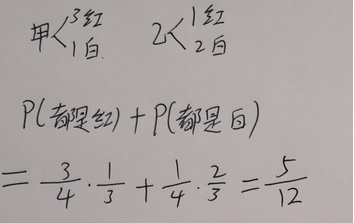 甲<3红 1白 乙<1红 2白
P(都是红)+P(都是白)
= 3/4 · 1/3 + 1/4 · 2/3 = 5/12